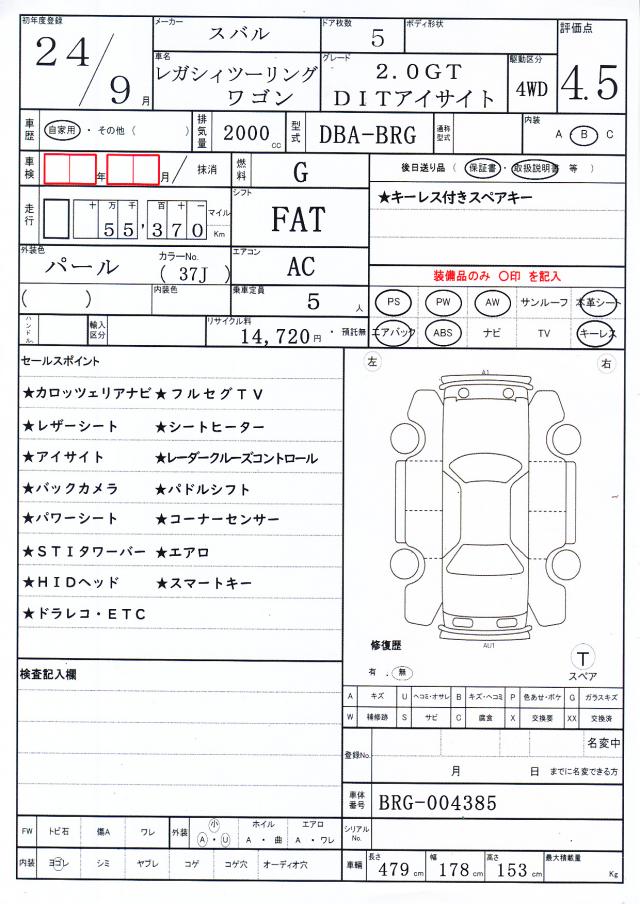 初年度登録 24/9月 メーカー スバル ドア枚数 5 ボディ形状 評価点 4.5
車名 レガシィツーリングワゴン グレード 2.0GT DITアイサイト 駆動区分 4WD
車歴 自家用・その他( ) 排気量 2000cc 型式 DBA-BRG 通称型式 内装 A・B C
車検 年 月/ 抹消 燃料 G 後日送り品( 保証書・取扱説明書 等 )
走行 十万千百十一 55,370 マイル Km シフト FAT ★キーレス付きスペアキー
外装色 パール カラーNo. ( 37J ) エアコン AC 装備品のみ 〇印 を記入
( ) 内装色 乗車定員 5人 PS PW AW サンルーフ 本革シート
ハンドル 輸入区分 リサイクル料 14,720円・預託無 エアバック ABS ナビ TV キーレス
セールスポイント 左 右
★カロッツェリアナビ★フルセグTV A1
★レザーシート ★シートヒーター
★アイサイト ★レーダークルーズコントロール
★バックカメラ ★パドルシフト
★パワーシート ★コーナーセンサー
★STIタワーバー ★エアロ
★HIDヘッド ★スマートキー
★ドラレコ・ETC
AU1
修復歴 有・無 T スペア
検査記入欄
A キズ U ヘコミ・オサレ B キズ・ヘコミ P 色あせ・ボケ G ガラスキズ
W 補修跡 S サビ C 腐食 X 交換要 XX 交換済
登録No. 名変中
月 日 までに名変できる方
車体番号 BRG-004385
FW トビ石 傷A ワレ 外装 小 A・U ホイル A・曲 エアロ A・ワレ シリアルNo.
内装 ヨゴレ シミ ヤブレ コゲ コゲ穴 オーディオ穴 車輌 長さ 479cm 幅 178cm 高さ 153cm 最大積載量 Kg